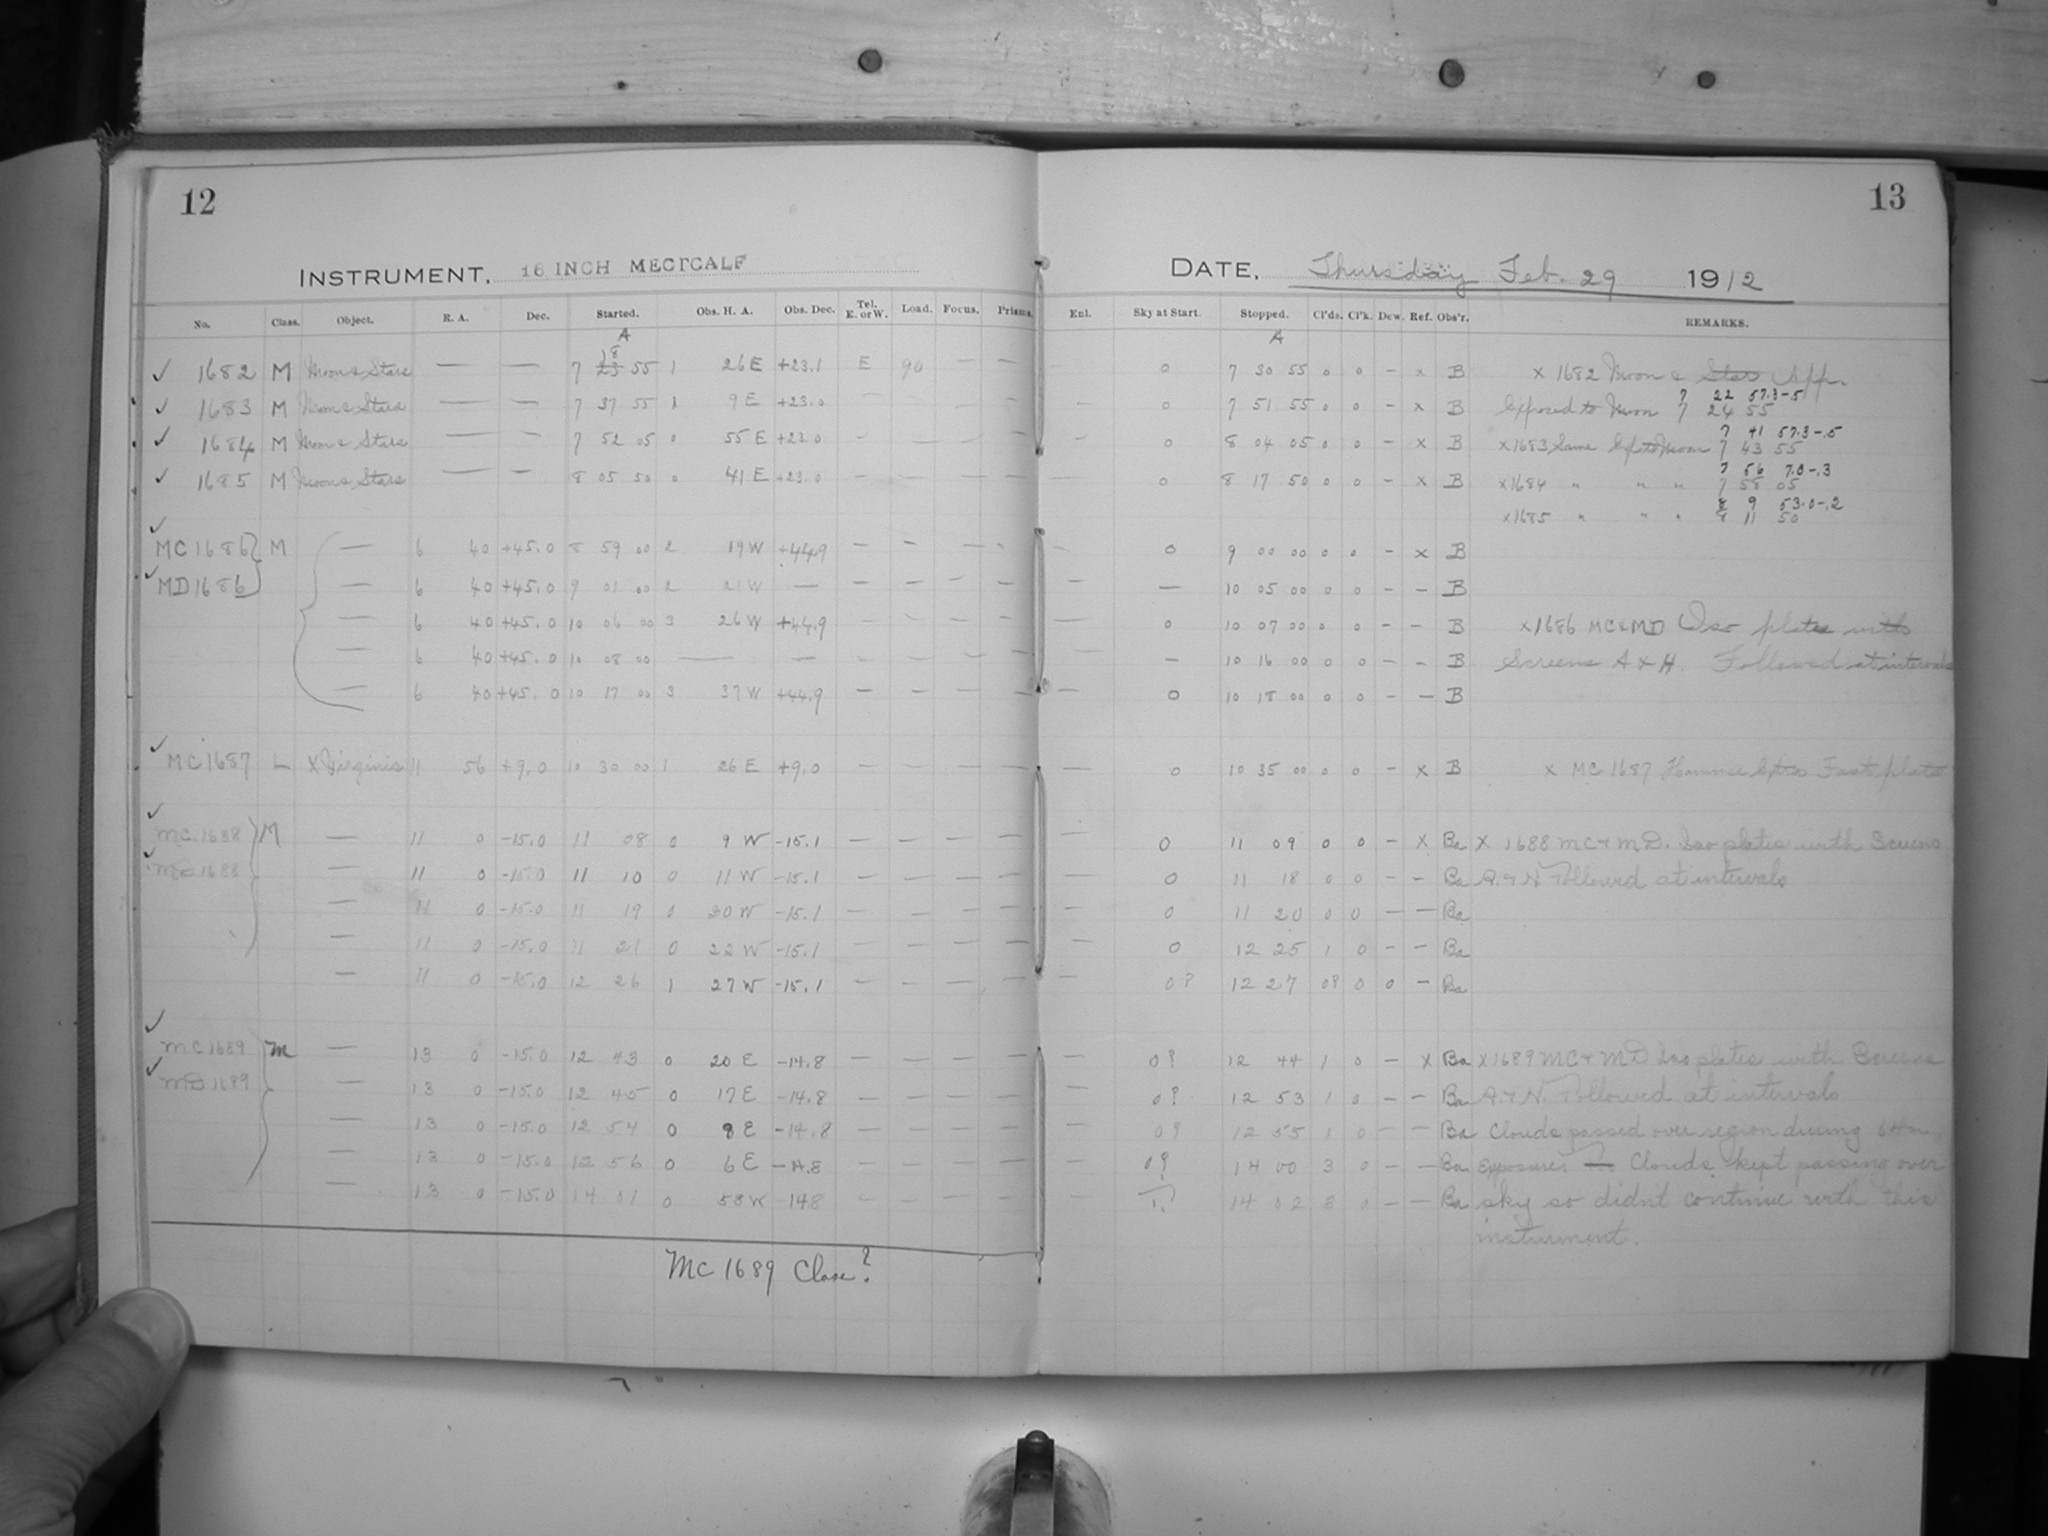 12
13
INSTRUMENT, 16 INCH MECTCALF
DATE, Thursday Feb. 29 1912
No. Class. Object. R. A. Dec. Started. Obs. H. A. Obs. Dec. Tel. E. or W. Load. Focus. Prisms. Enl. Sky at Start. Stopped. Cl'ds. Cl'k. Dew. Ref. Obs'r. REMARKS.
A A
✓ 1682 M Moon & Stars — — 7 23 18 55 1 26 E +23.1 E 90 — — 0 7 30 55 0 0 - x B x 1682 Moon & Star App.
7 22 57.3-.5
✓ 1683 M Moon & Stars — — 7 37 55 1 9 E +23.0 — — — — 0 7 51 55 0 0 - x B Exposed to Moon 7 24 55
7 41 57.3-.5
✓ 1684 M Moon & Stars — — 7 52 05 0 55 E +23.0 - — — — - 0 8 04 05 0 0 - x B x1683 Same Exp to Moon 7 43 55
7 56 7.0-.3
✓ 1685 M Moon & Stars — — 8 05 50 0 41 E +23.0 — — — — — 0 8 17 50 0 0 - x B x1684 " " " 7 58 05
8 9 53.0-.2
x1685 " " " 8 11 50
✓ MC 1686 } M — 6 40 +45.0 8 59 00 2 19 W +44.9 — — — - - 0 9 00 00 0 0 - x B
✓ MD 1686 — 6 40 +45.0 9 01 00 2 21 W — — — - — — — 10 05 00 0 0 - - B
— 6 40 +45.0 10 06 00 3 26 W +44.9 — — — — — 0 10 07 00 0 0 - - B x1686 MC & MD Iso plates with
— 6 40 +45.0 10 08 00 — — — — — — — — 10 16 00 0 0 - - B Screens A & H. Followed at intervals
— 6 40 +45.0 10 17 00 3 37 W +44.9 — — — — — 0 10 18 00 0 0 - — B
✓ MC 1687 L X Virginis 11 56 +9.0 10 30 00 1 26 E +9.0 — — — — — 0 10 35 00 0 0 - X B x MC 1687 Hammer Extra Fast plate
✓ MC 1688 } M — 11 0 -15.0 11 08 0 9 W -15.1 — — — — — 0 11 09 0 0 - X Ba X 1688 MC & MD. Iso plates with Screens
✓ MD 1688 — 11 0 -15.0 11 10 0 11 W -15.1 — — — — — 0 11 18 0 0 - - Ba A. & H. Followed at intervals
— 11 0 -15.0 11 19 0 20 W -15.1 — — — — — 0 11 20 0 0 — — Ba
— 11 0 -15.0 11 21 0 22 W -15.1 — — — — — 0 12 25 1 0 - - Ba
— 11 0 -15.0 12 26 1 27 W -15.1 — — — — — 0? 12 27 0? 0 0 - Ba
✓ MC 1689 } M — 13 0 -15.0 12 43 0 20 E -14.8 — — — — — 0? 12 44 1 0 - X Ba x1689 MC & MD Iso plates with Screens
✓ MD 1689 — 13 0 -15.0 12 45 0 17 E -14.8 — — — — — 0? 12 53 1 0 - - Ba A. & H. Followed at intervals
— 13 0 -15.0 12 54 0 8 E -14.8 — — — — — 0? 12 55 1 0 - - Ba Clouds passed over region during 64m
— 13 0 -15.0 12 56 0 6 E -14.8 — — — — — 0? 14 00 3 0 - - Ba exposure. Clouds kept passing over
— 13 0 -15.0 14 01 0 58 W -14.8 — — — — — 14 02 3 0 - - Ba sky so didn't continue with this
instrument.
MC 1689 Close?